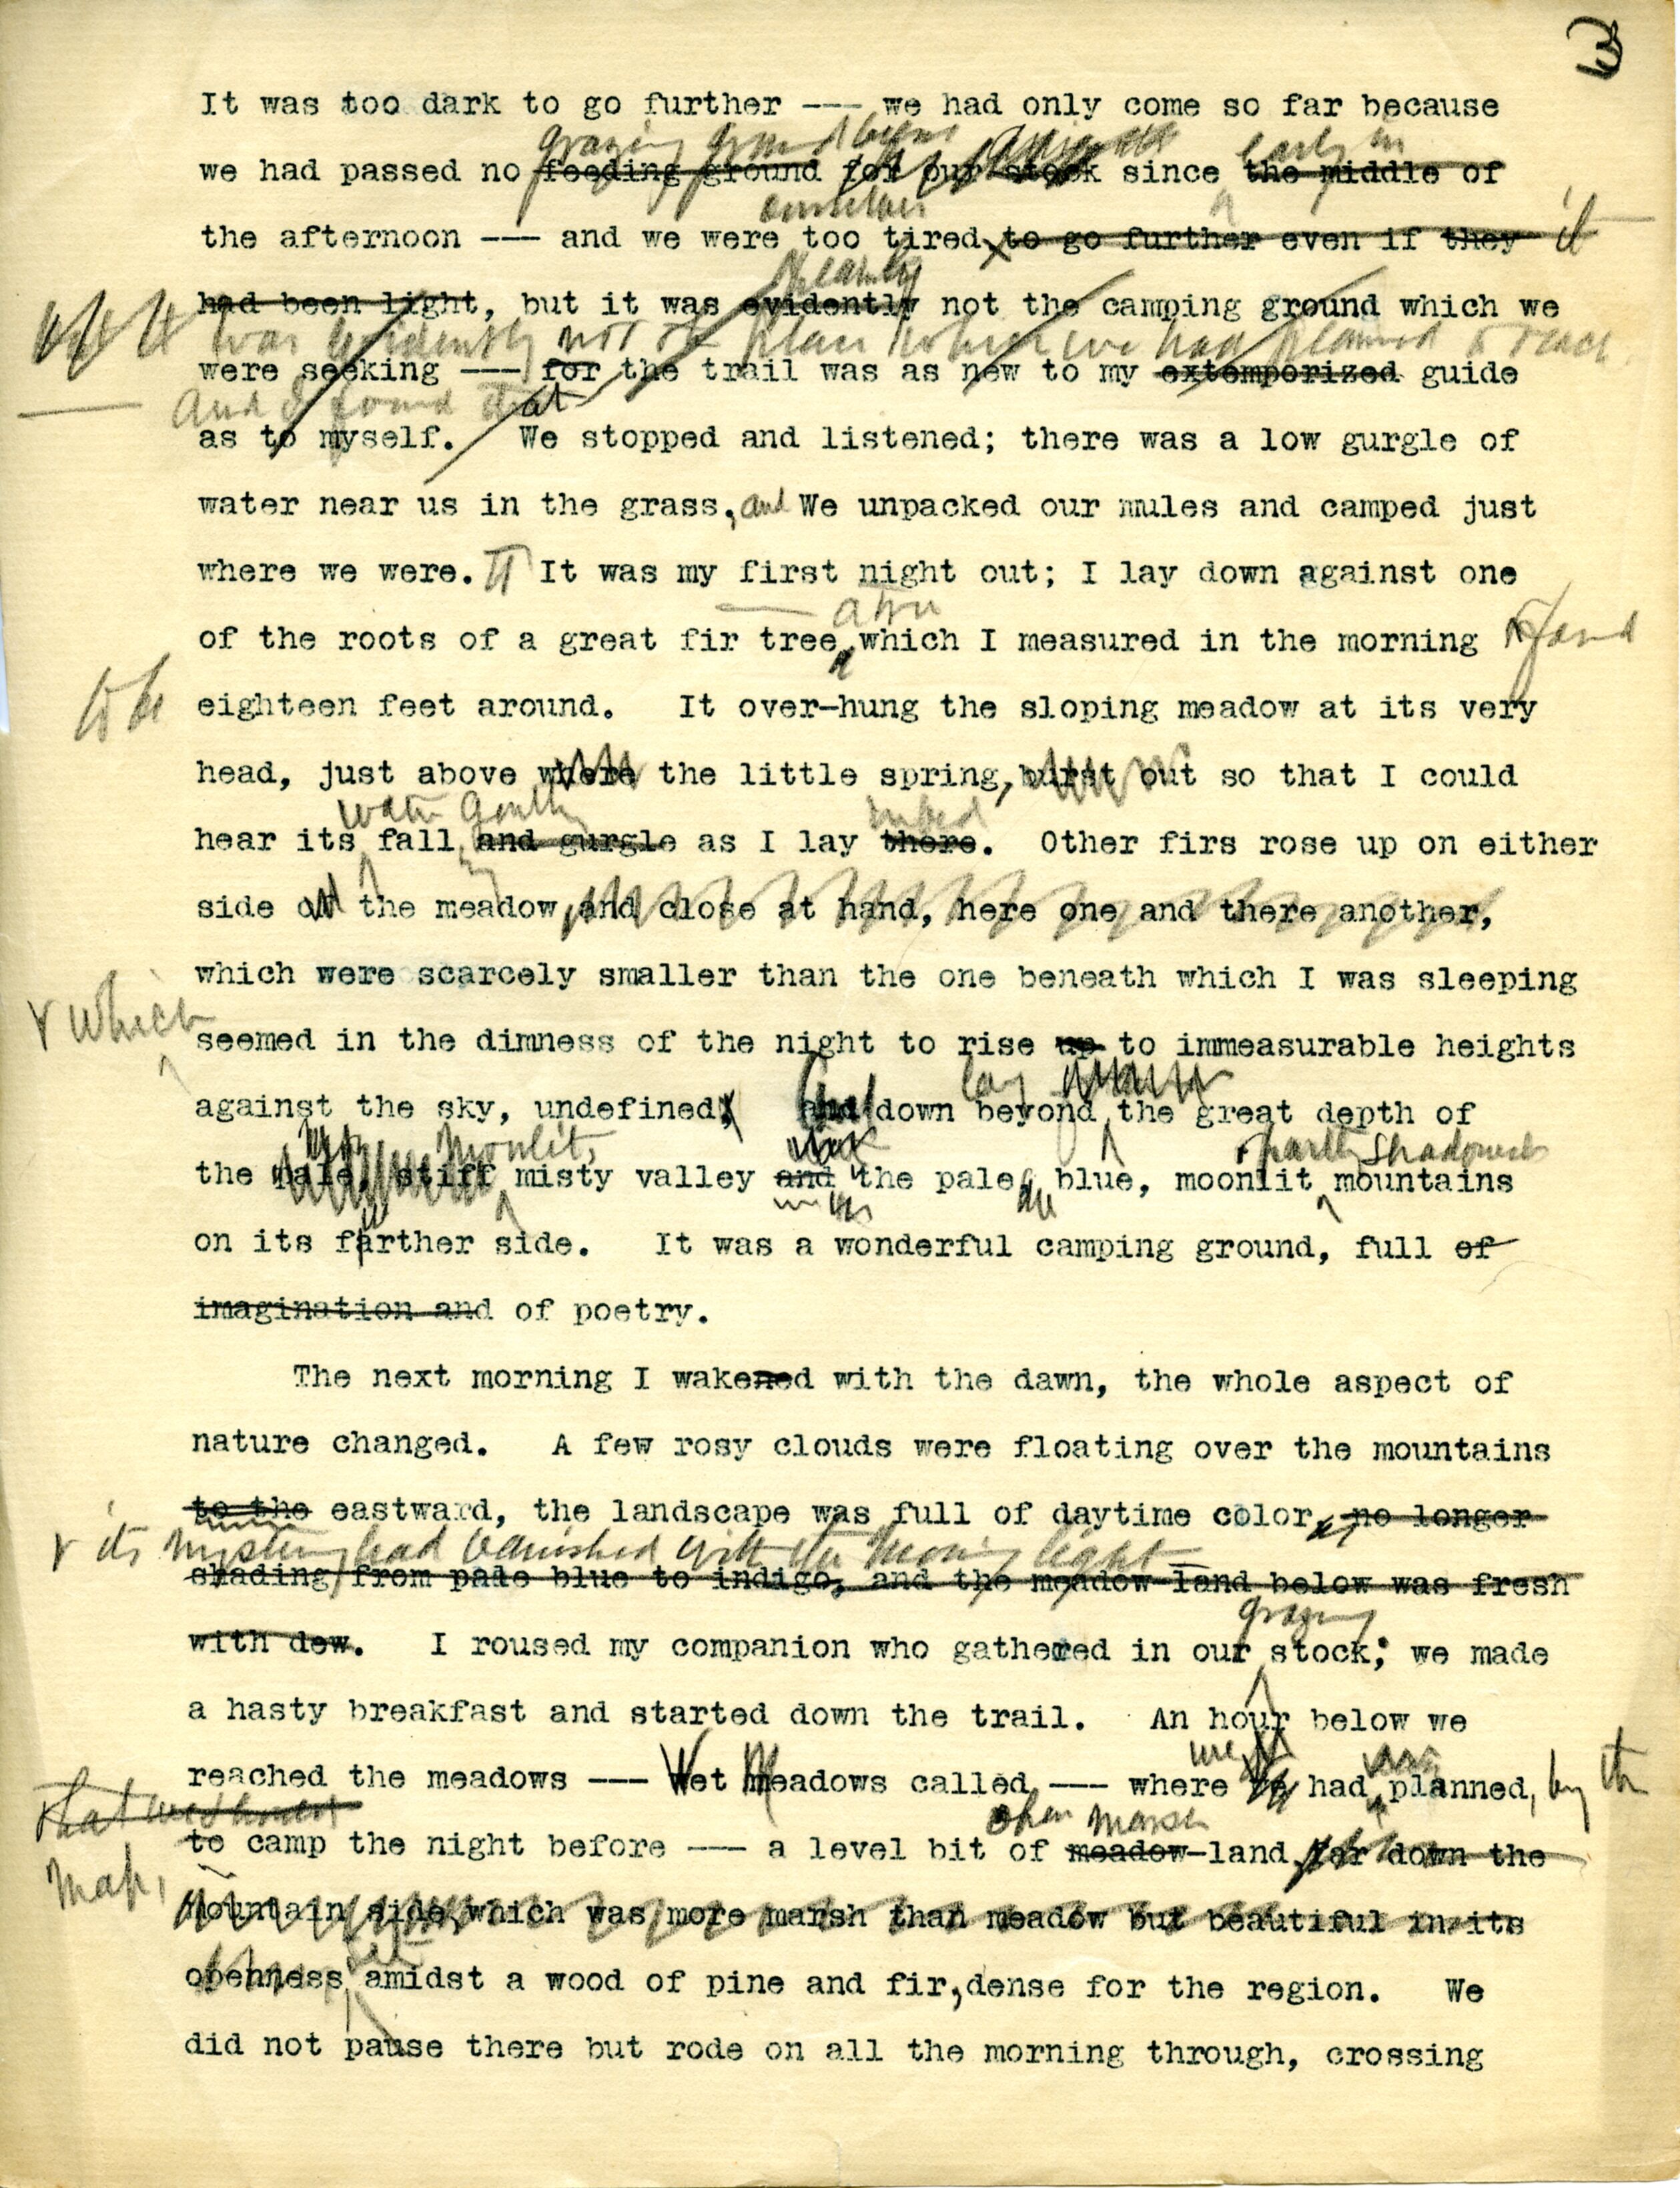 3
It was too dark to go further --- we had only come so far because
grazing ground early in
we had passed no feeding ground for our stock since the middle of
ourselves
the afternoon --- and we were too tired to go further even if they it
clearly
had been light, but it was evidently not the camping ground which we
was evidently not the place which we had planned to reach
were seeking --- for the trail was as new to my extemporized guide
and I found that
as to myself. We stopped and listened; there was a low gurgle of
water near us in the grass, and We unpacked our mules and camped just
where we were. ¶ It was my first night out; I lay down against one
a tree
of the roots of a great fir tree, which I measured in the morning & found
to be eighteen feet around. It over-hung the sloping meadow at its very
head, just above where the little spring, burst out so that I could
water gently in bed
hear its fall, and gurgle as I lay there. Other firs rose up on either
side of the meadow, and close at hand, here one and there another,
which were scarcely smaller than the one beneath which I was sleeping
& which seemed in the dimness of the night to rise up to immeasurable heights
lay
against the sky, undefined; and down beyond the great depth of
moonlit, & partly shadowed
the pale, stiff misty valley and the pale, blue, moonlit mountains
on its farther side. It was a wonderful camping ground, full of
imagination and of poetry.
The next morning I wakened with the dawn, the whole aspect of
nature changed. A few rosy clouds were floating over the mountains
to the eastward, the landscape was full of daytime color, no longer
& its mystery had vanished with the morning light
shading from pale blue to indigo, and the meadow-land below was fresh
grazing
with dew. I roused my companion who gathered in our stock; we made
a hasty breakfast and started down the trail. An hour below we
we
reached the meadows --- Wet Meadows called, --- where we had planned, by the
that we should
open marsh
map, to camp the night before --- a level bit of meadow-land, far down the
mountain side, which was more marsh than meadow but beautiful in its
set
openness, amidst a wood of pine and fir, dense for the region. We
did not pause there but rode on all the morning through, crossing